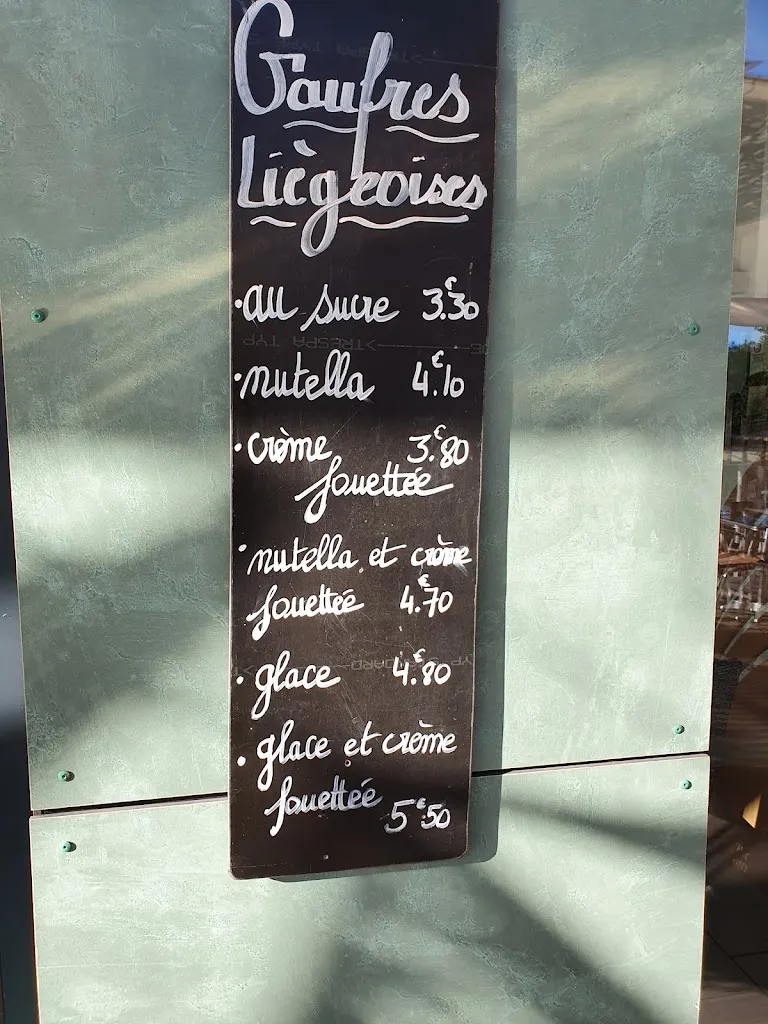 Gaufres
Liègeoises
• au sucre 3.€30
• nutella 4.€10
• crème 3.€80
fouettée
• nutella et crème
fouettée 4.€70
• glace 4.€80
• glace et crème
fouettée 5€50